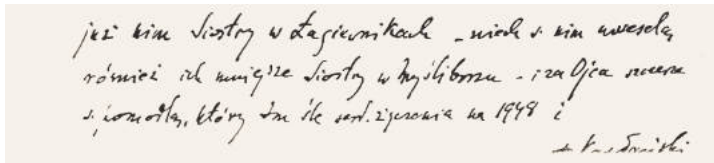 już nim Siostry w Łagiewnikach – niech się nim uweselą
również ich mniejsze Siostry w Myśliborzu – i za Ojca
się pomodlą, który Im śle serd. życzenia na 1948 i